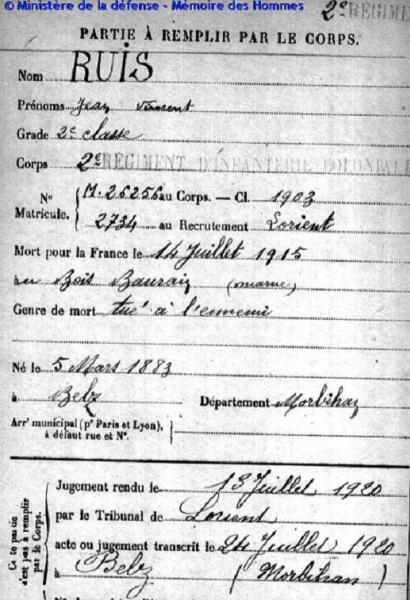 © Ministère de la défense - Mémoire des Hommes
2e RÉGIMENT
PARTIE À REMPLIR PAR LE CORPS.
Nom RUIS
Prénoms Jean Vincent
Grade 2e classe
Corps 2e RÉGIMENT D'INFANTERIE COLONIALE
No Matricule. M. 26256 au Corps. — Cl. 1903
2734 au Recrutement Lorient
Mort pour la France le 14 Juillet 1915
au Bois (marne)
Genre de mort tué à l'ennemi
Né le 5 Mars 1883
à Belz Département Morbihan
Arrt municipal (pr Paris et Lyon), à défaut rue et No.
Ce partie n'est pas à remplir par le Corps.
Jugement rendu le 13 Juillet 1920
par le Tribunal de Lorient
acte ou jugement transcrit le 24 Juillet 1920
à Belz (Morbihan